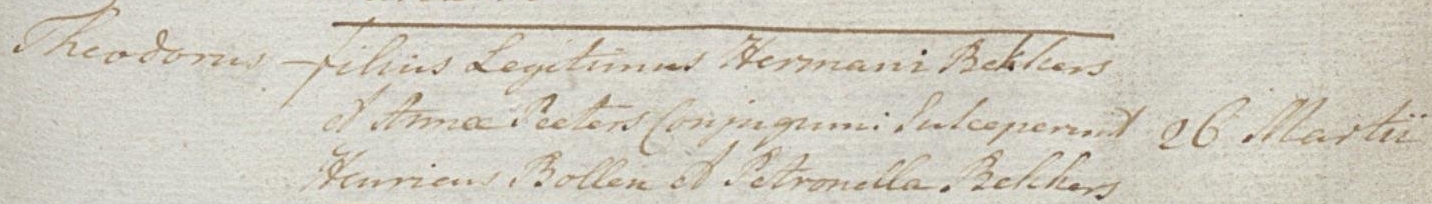 Theodorus – filius Legitimus Hermani Bekkers
et Annæ Peeters Conjugum: Susceperunt 26 Martii
Henricus Bollen et Petronella Bekkers